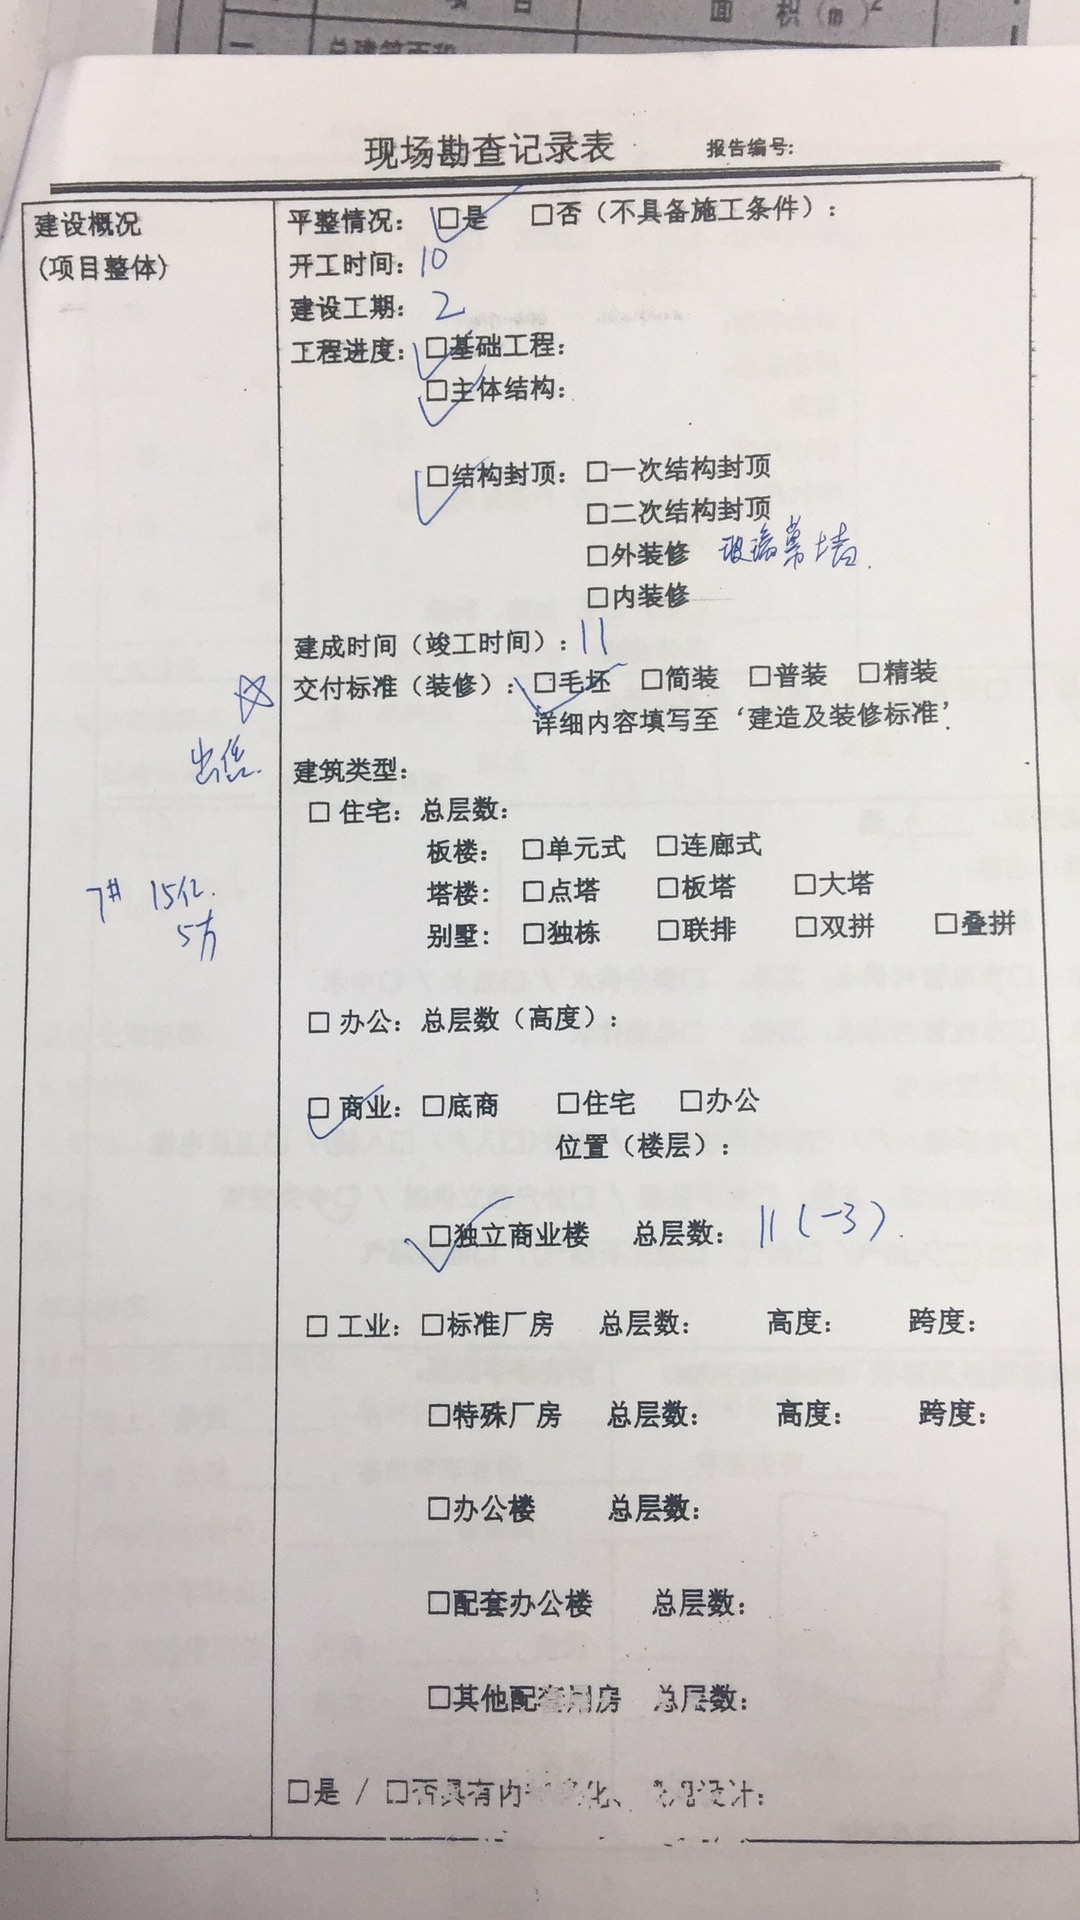 项 目
面 积（㎡）
一
总建筑面积
现场勘查记录表 报告编号:
建设概况
(项目整体)
平整情况: □是 □否（不具备施工条件）:
开工时间: 10
建设工期: 2
工程进度: □基础工程:
□主体结构:
□结构封顶: □一次结构封顶
□二次结构封顶
□外装修 玻璃幕墙.
□内装修
建成时间（竣工时间）: 11
交付标准（装修）: □毛坯 □简装 □普装 □精装
详细内容填写至‘建造及装修标准’
建筑类型:
□ 住宅: 总层数:
板楼: □单元式 □连廊式
7# 15亿.
塔楼: □点塔 □板塔 □大塔
5万
别墅: □独栋 □联排 □双拼 □叠拼
□ 办公: 总层数（高度）:
□ 商业: □底商 □住宅 □办公
位置（楼层）:
□独立商业楼 总层数: 11（-3）.
□ 工业: □标准厂房 总层数: 高度: 跨度:
□特殊厂房 总层数: 高度: 跨度:
□办公楼 总层数:
□配套办公楼 总层数:
□其他配套用房 总层数:
□是 / □否具有内 化、 设计: